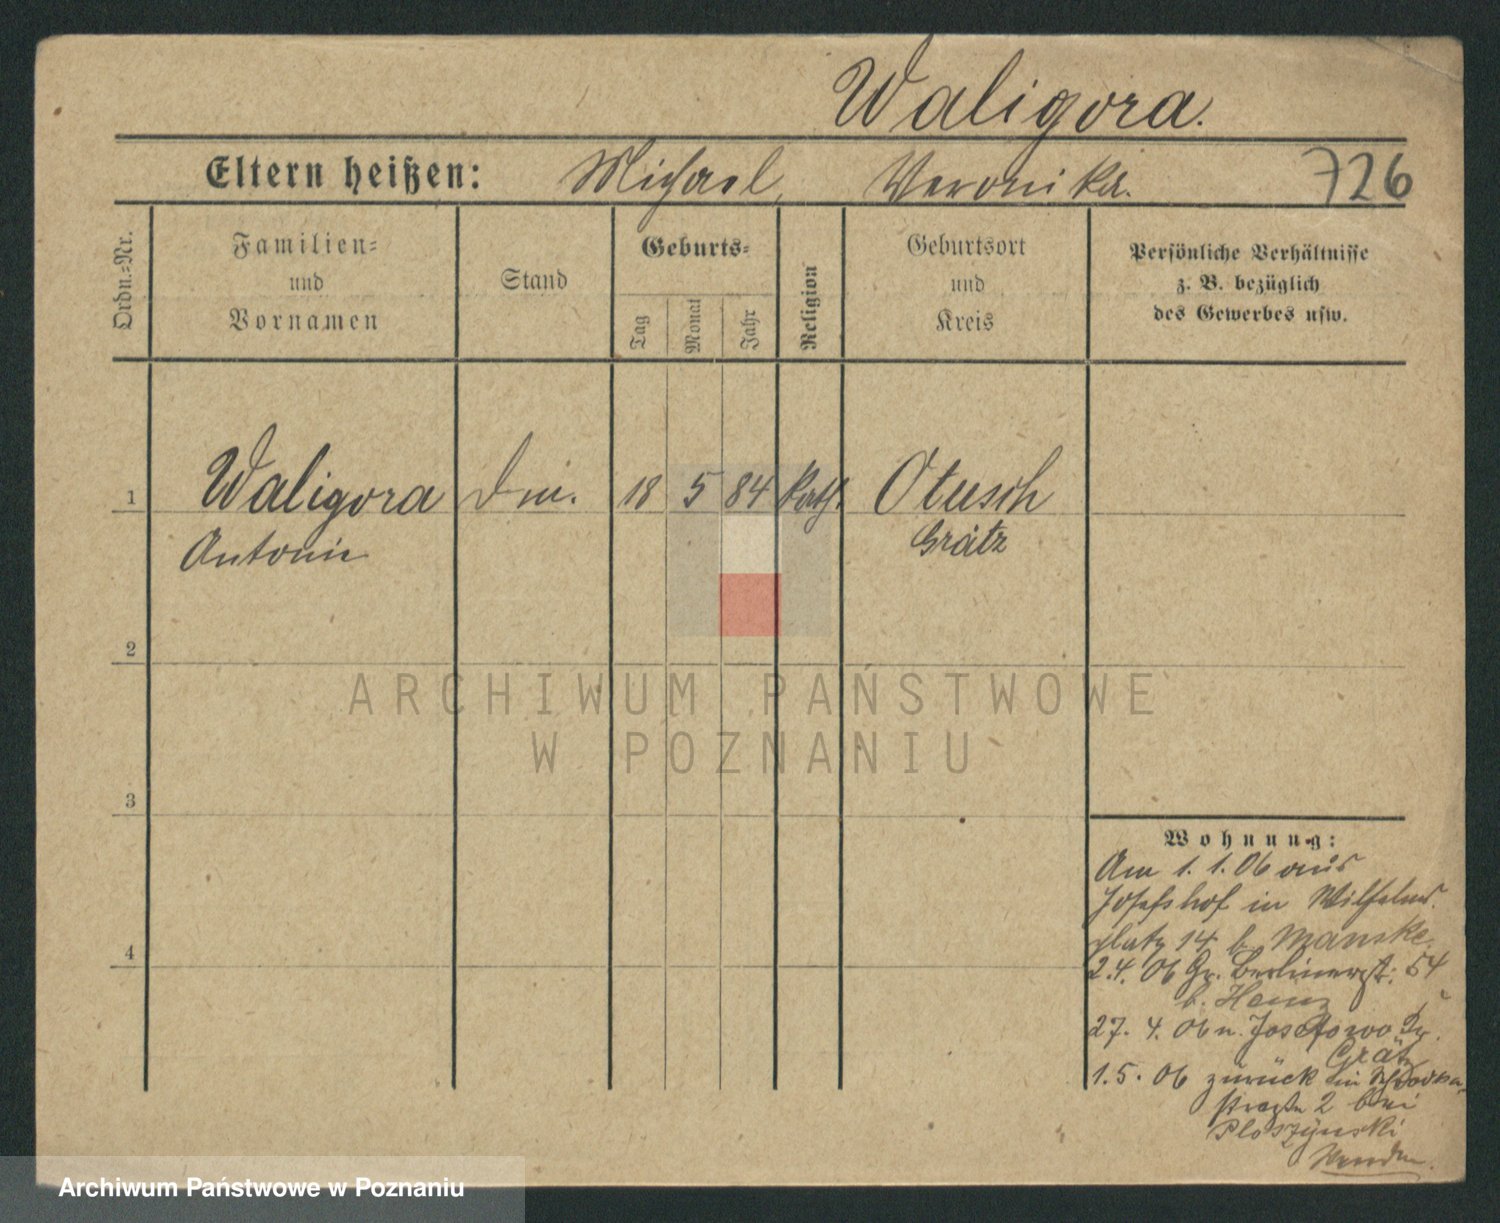 Waligora.
Eltern heißen: Michael, Veronika.
726
Ordn.-Nr.
Familien-
und
Vornamen
Stand
Geburts-
Tag
Monat
Jahr
Religion
Geburtsort
und
Kreis
Persönliche Verhältnisse
z. B. bezüglich
des Gewerbes usw.
1 Waligora Dm. 18 5 84 kath. Otusch
Antonie Grätz
2
ARCHIWUM PAŃSTWOWE
W POZNANIU
3
Wohnung:
Am 1. 1. 06 aus
Josefshof in Wilhelms
platz 14 b. Manske.
4
2.4. 06 Gr. Berlinerst. 54
b.
27. 4. 06 n. Josefowo Kr.
Grätz
1.5. 06 zurück in Schrodka
straße 2 bei
Ploszynski
Wenden.
Archiwum Państwowe w Poznaniu